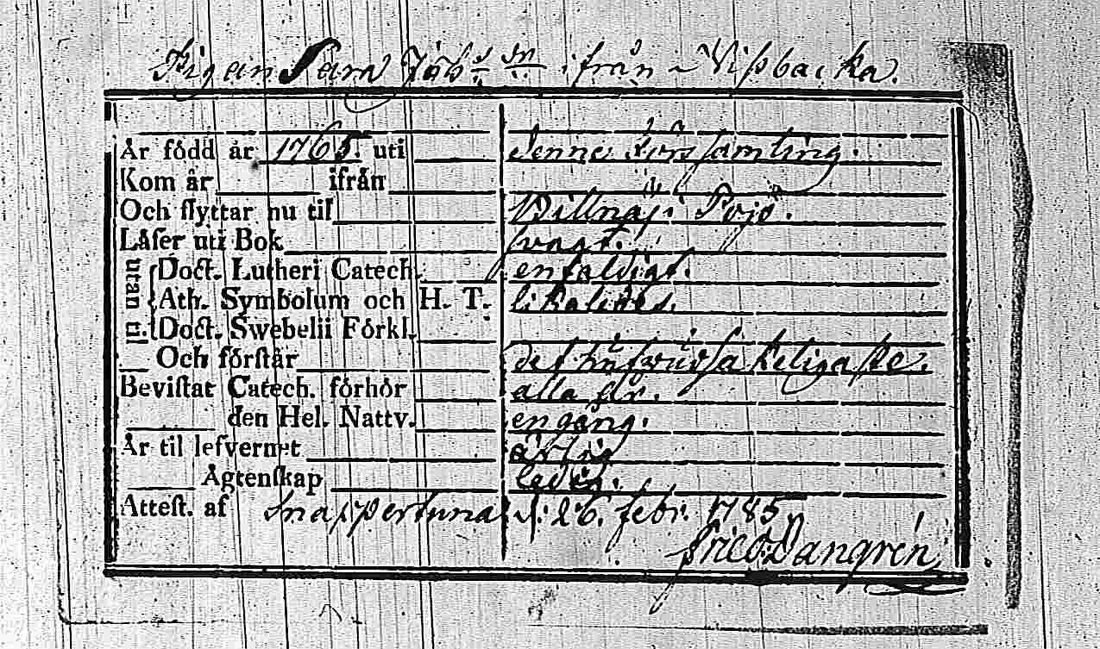 Pigan Sara Jöhs dr ifrån Wissbacka.
År född år 1765. uti denne Församling.
Kom år ifrån
Och flyttar nu til Billnäs i Pojo.
Läser uti Bok svagt.
utan til Doct. Lutheri Catech. enfaldigt.
Ath. Symbolum och H. T. likaledes.
Doct. Swebelii Förkl.
Och förstår det hufvudsakeligaste.
Bevistat Catech. förhör alla år.
den Hel. Nattv. en gång.
År til lefvernet ärlig
Ägtenskap ledig.
Attest. af Snappertuna d. 26. febr. 1785.